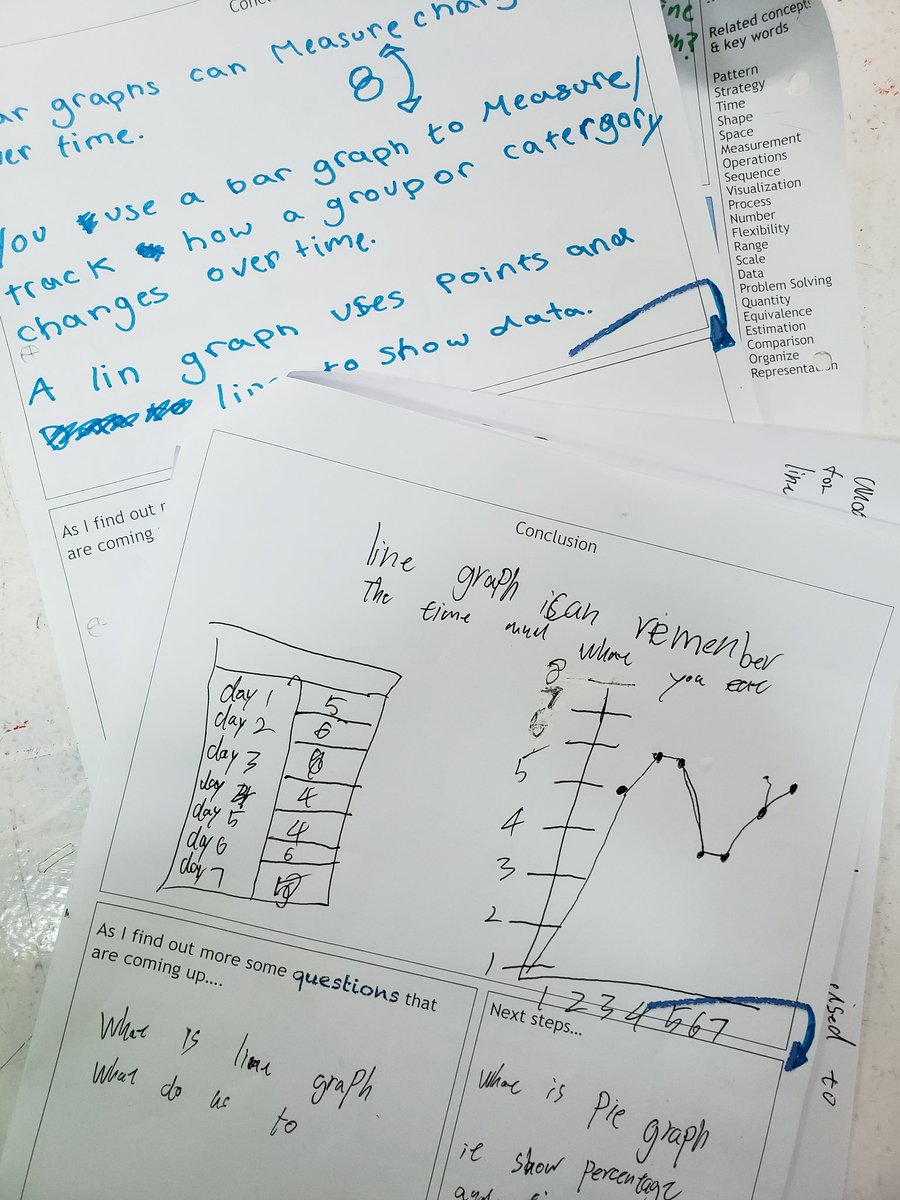 ar graphs can Measure
8
er time.
You use a bar graph to Measure/
track how a group or catergory
changes over time.
A lin graph uses points and
to show data.
As I find out
are coming
Related concept
& key words
Pattern
Strategy
Time
Shape
Space
Measurement
Operations
Sequence
Visualization
Process
Number
Flexibility
Range
Scale
Data
Problem Solving
Quantity
Equivalence
Estimation
Comparison
Organize
Representation
What
for
line
Conclusion
line graph can remember
The time and what you
day 1 5
day 2 6
day 3 8
day 4 4
day 5 4
day 6 6
day 7
8
7
6
5
4
3
2
1
1 2 3 4 5 6 7
As I find out more some questions that
are coming up....
What is line graph
What do us to
Next steps...
What is Pie graph
ie show percentage
used to